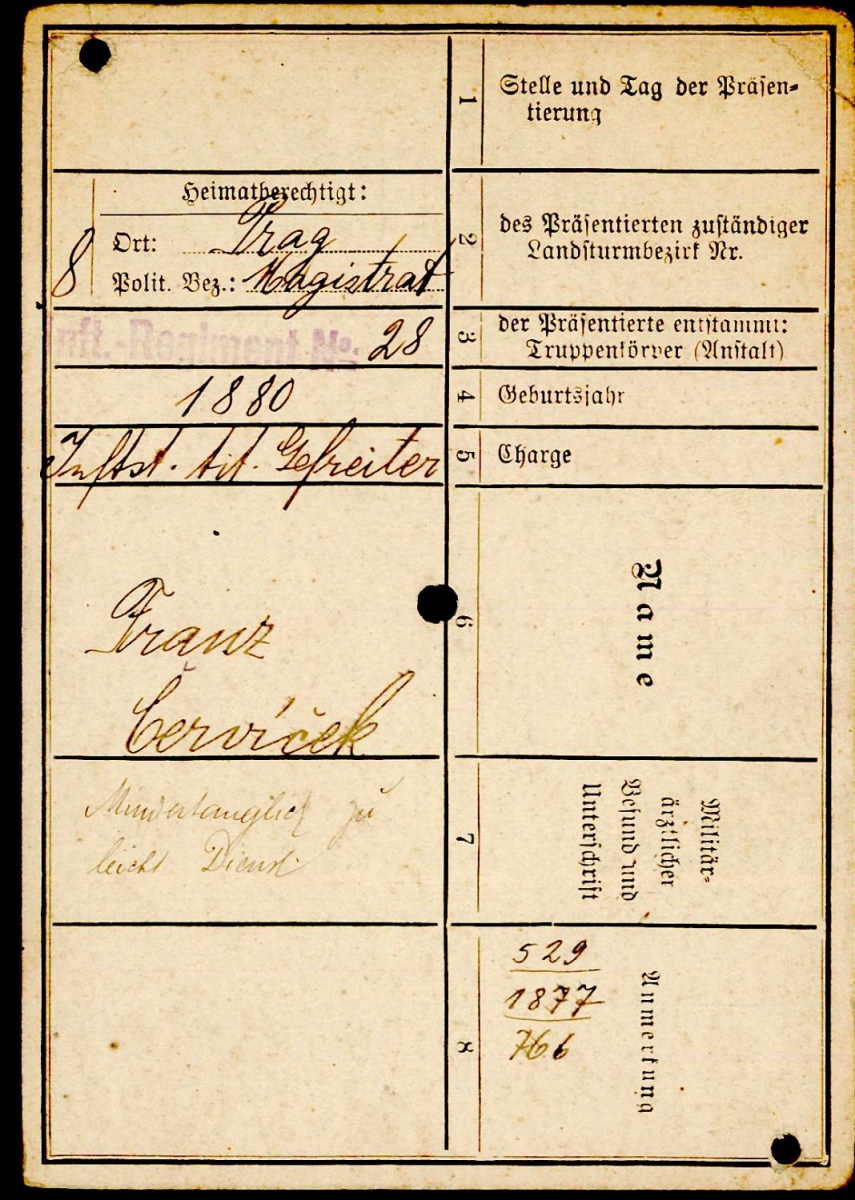 1
Stelle und Tag der Präsen-
tierung
Heimatberechtigt:
8
Ort: Prag
Polit. Bez.: Magistrat
2
des Präsentierten zuständiger
Landsturmbezirk Nr.
Inft.-Regiment No. 28
3
der Präsentierte entstammt:
Truppenkörper (Anstalt)
1880
4
Geburtsjahr
Inftst. tit. Gefreiter
5
Charge
Franz
Červíček
6
Name
Mindertauglich zu
leicht Dienst
7
Militär-
ärztlicher
Befund und
Unterschrift
8
529
1877
766
Anmerkung